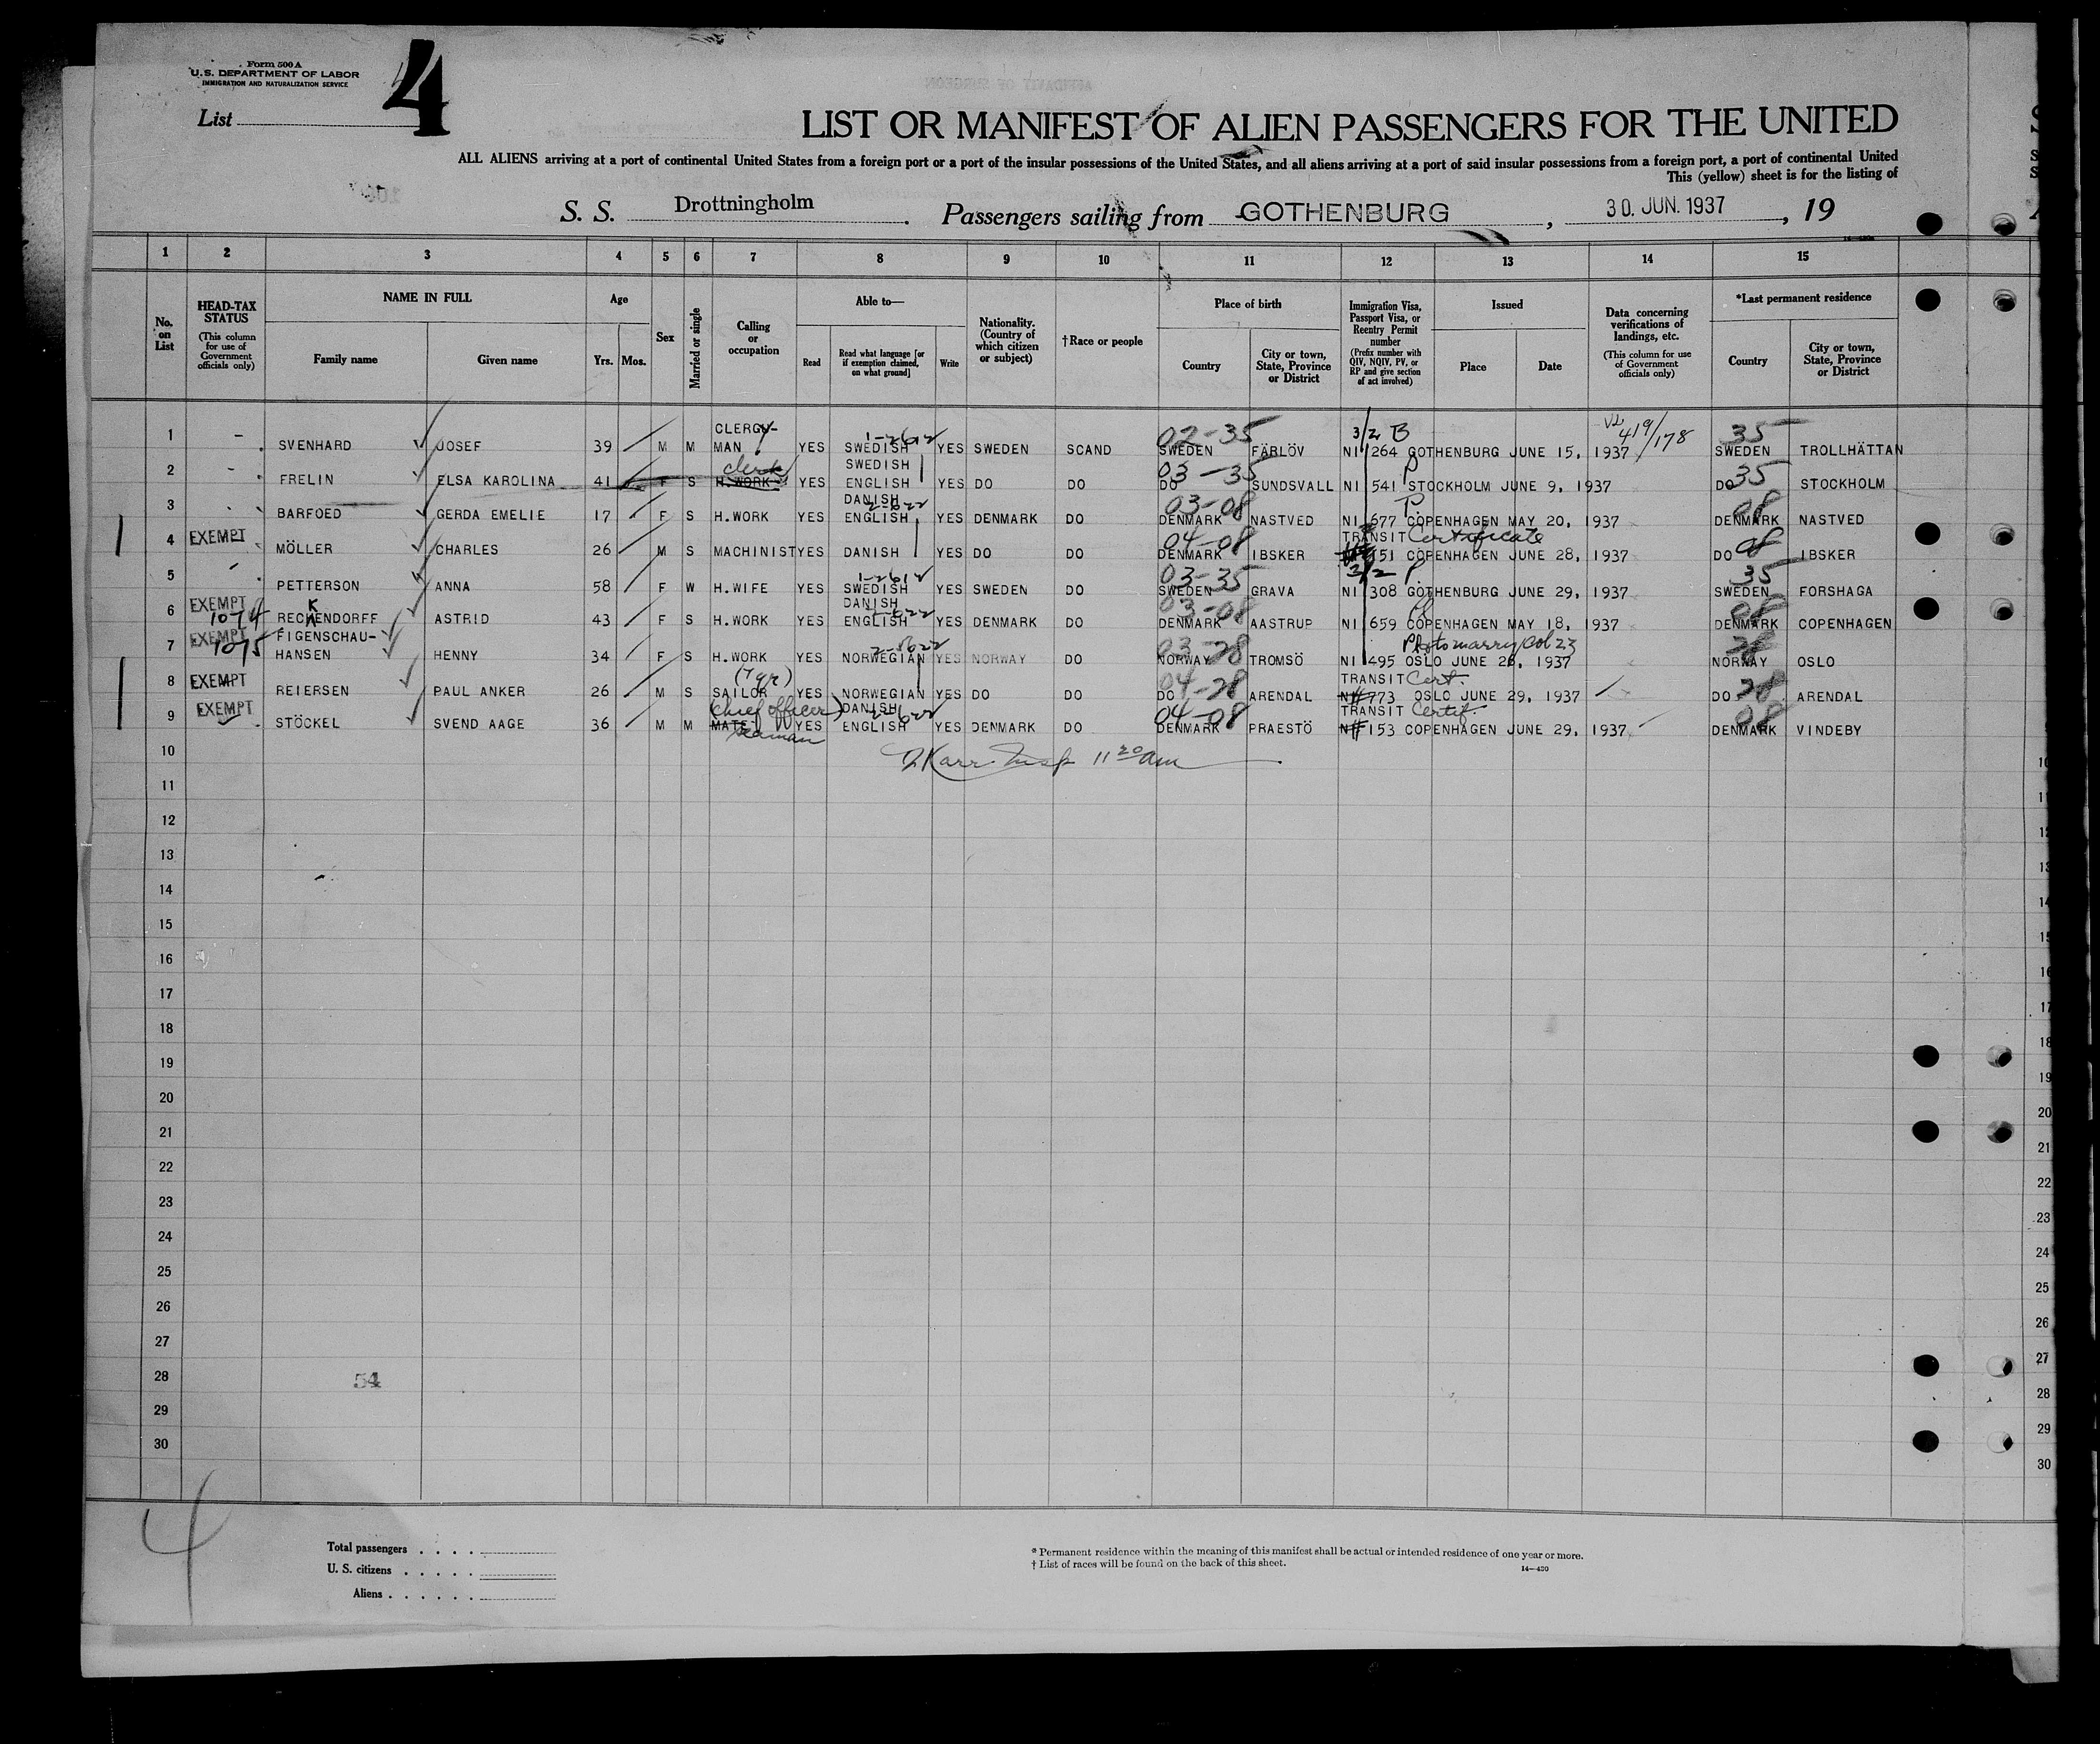 Form 500 A
U. S. DEPARTMENT OF LABOR
IMMIGRATION AND NATURALIZATION SERVICE
List 4
LIST OR MANIFEST OF ALIEN PASSENGERS FOR THE UNITED
ALL ALIENS arriving at a port of continental United States from a foreign port or a port of the insular possessions of the United States, and all aliens arriving at a port of said insular possessions from a foreign port, a port of continental United
This (yellow) sheet is for the listing of
S. S. Drottningholm. Passengers sailing from GOTHENBURG, 30. JUN. 1937, 19
1 2 3 4 5 6 7 8 9 10 11 12 13 14 15
No. on List
HEAD-TAX STATUS (This column for use of Government officials only)
NAME IN FULL
Family name Given name
Age
Yrs. Mos.
Sex
Married or single
Calling or occupation
Able to—
Read
Read what language [or if exemption claimed, on what ground]
Write
Nationality. (Country of which citizen or subject)
†Race or people
Place of birth
Country
City or town, State, Province or District
Immigration Visa, Passport Visa, or Reentry Permit number (Prefix number with QIV, NQIV, PV, or RP and give section of act involved)
Issued
Place Date
Data concerning verifications of landings, etc. (This column for use of Government officials only)
*Last permanent residence
Country
City or town, State, Province or District
1 - SVENHARD JOSEF 39 M M CLERGY-MAN YES SWEDISH 1-2612 YES SWEDEN SCAND 02-35 SWEDEN FÄRLÖV 3/2 B NI 264 GOTHENBURG JUNE 15, 1937 419/178 35 SWEDEN TROLLHÄTTAN
2 - FRELIN ELSA KAROLINA 41 F S clerk H.WORK YES SWEDISH ENGLISH YES DO DO 03-35 DO SUNDSVALL NI 541 P STOCKHOLM JUNE 9, 1937 DO 35 STOCKHOLM
3 BARFOED GERDA EMELIE 17 F S H.WORK YES DANISH ENGLISH 2-622 YES DENMARK DO 03-08 DENMARK NASTVED NI 677 P. COPENHAGEN MAY 20, 1937 08 DENMARK NASTVED
4 EXEMPT MÖLLER CHARLES 26 M S MACHINIST YES DANISH YES DO DO 04-08 DENMARK IBSKER TRANSIT Certificate 151 COPENHAGEN JUNE 28, 1937 DO 08 IBSKER
5 - PETTERSON ANNA 58 F W H.WIFE YES SWEDISH 1-2612 YES SWEDEN DO 03-35 SWEDEN GRAVA 3/2 P. NI 308 GOTHENBURG JUNE 29, 1937 35 SWEDEN FORSHAGA
6 EXEMPT 1074 RECKENDORFF ASTRID 43 F S H.WORK YES DANISH ENGLISH 2-622 YES DENMARK DO 03-08 DENMARK AASTRUP NI 659 COPENHAGEN MAY 18, 1937 08 DENMARK COPENHAGEN
7 EXEMPT 1075 FIGENSCHAU-HANSEN HENNY 34 F S H.WORK YES NORWEGIAN YES NORWAY DO 03-28 NORWAY TROMSÖ NI 495 OSLO JUNE 26, 1937 P to marry Col 23 28 NORWAY OSLO
8 EXEMPT REIERSEN PAUL ANKER 26 M S SAILOR YES NORWEGIAN YES DO DO 04-28 DO ARENDAL TRANSIT Cert. 773 OSLO JUNE 29, 1937 DO 28 ARENDAL
9 EXEMPT STÖCKEL SVEND AAGE 36 M M (Chief officer) MATE seaman YES DANISH ENGLISH 2-622 YES DENMARK DO 04-08 DENMARK PRAESTÖ TRANSIT Certif. 153 COPENHAGEN JUNE 29, 1937 08 DENMARK VINDEBY
10 Karr Insp 11 20 am 10
11 11
12 12
13 13
14 14
15 15
16 16
17 17
18 18
19 19
20 20
21 21
22 22
23 23
24 24
25 25
26 26
27 27
28 54 28
29 29
30 30
4
Total passengers . . . .
U. S. citizens . . . . .
Aliens . . . . . .
* Permanent residence within the meaning of this manifest shall be actual or intended residence of one year or more.
† List of races will be found on the back of this sheet.
14—430